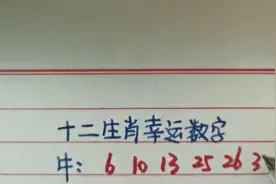 十二生肖幸运数字
牛: 6 10 13 25 26 3